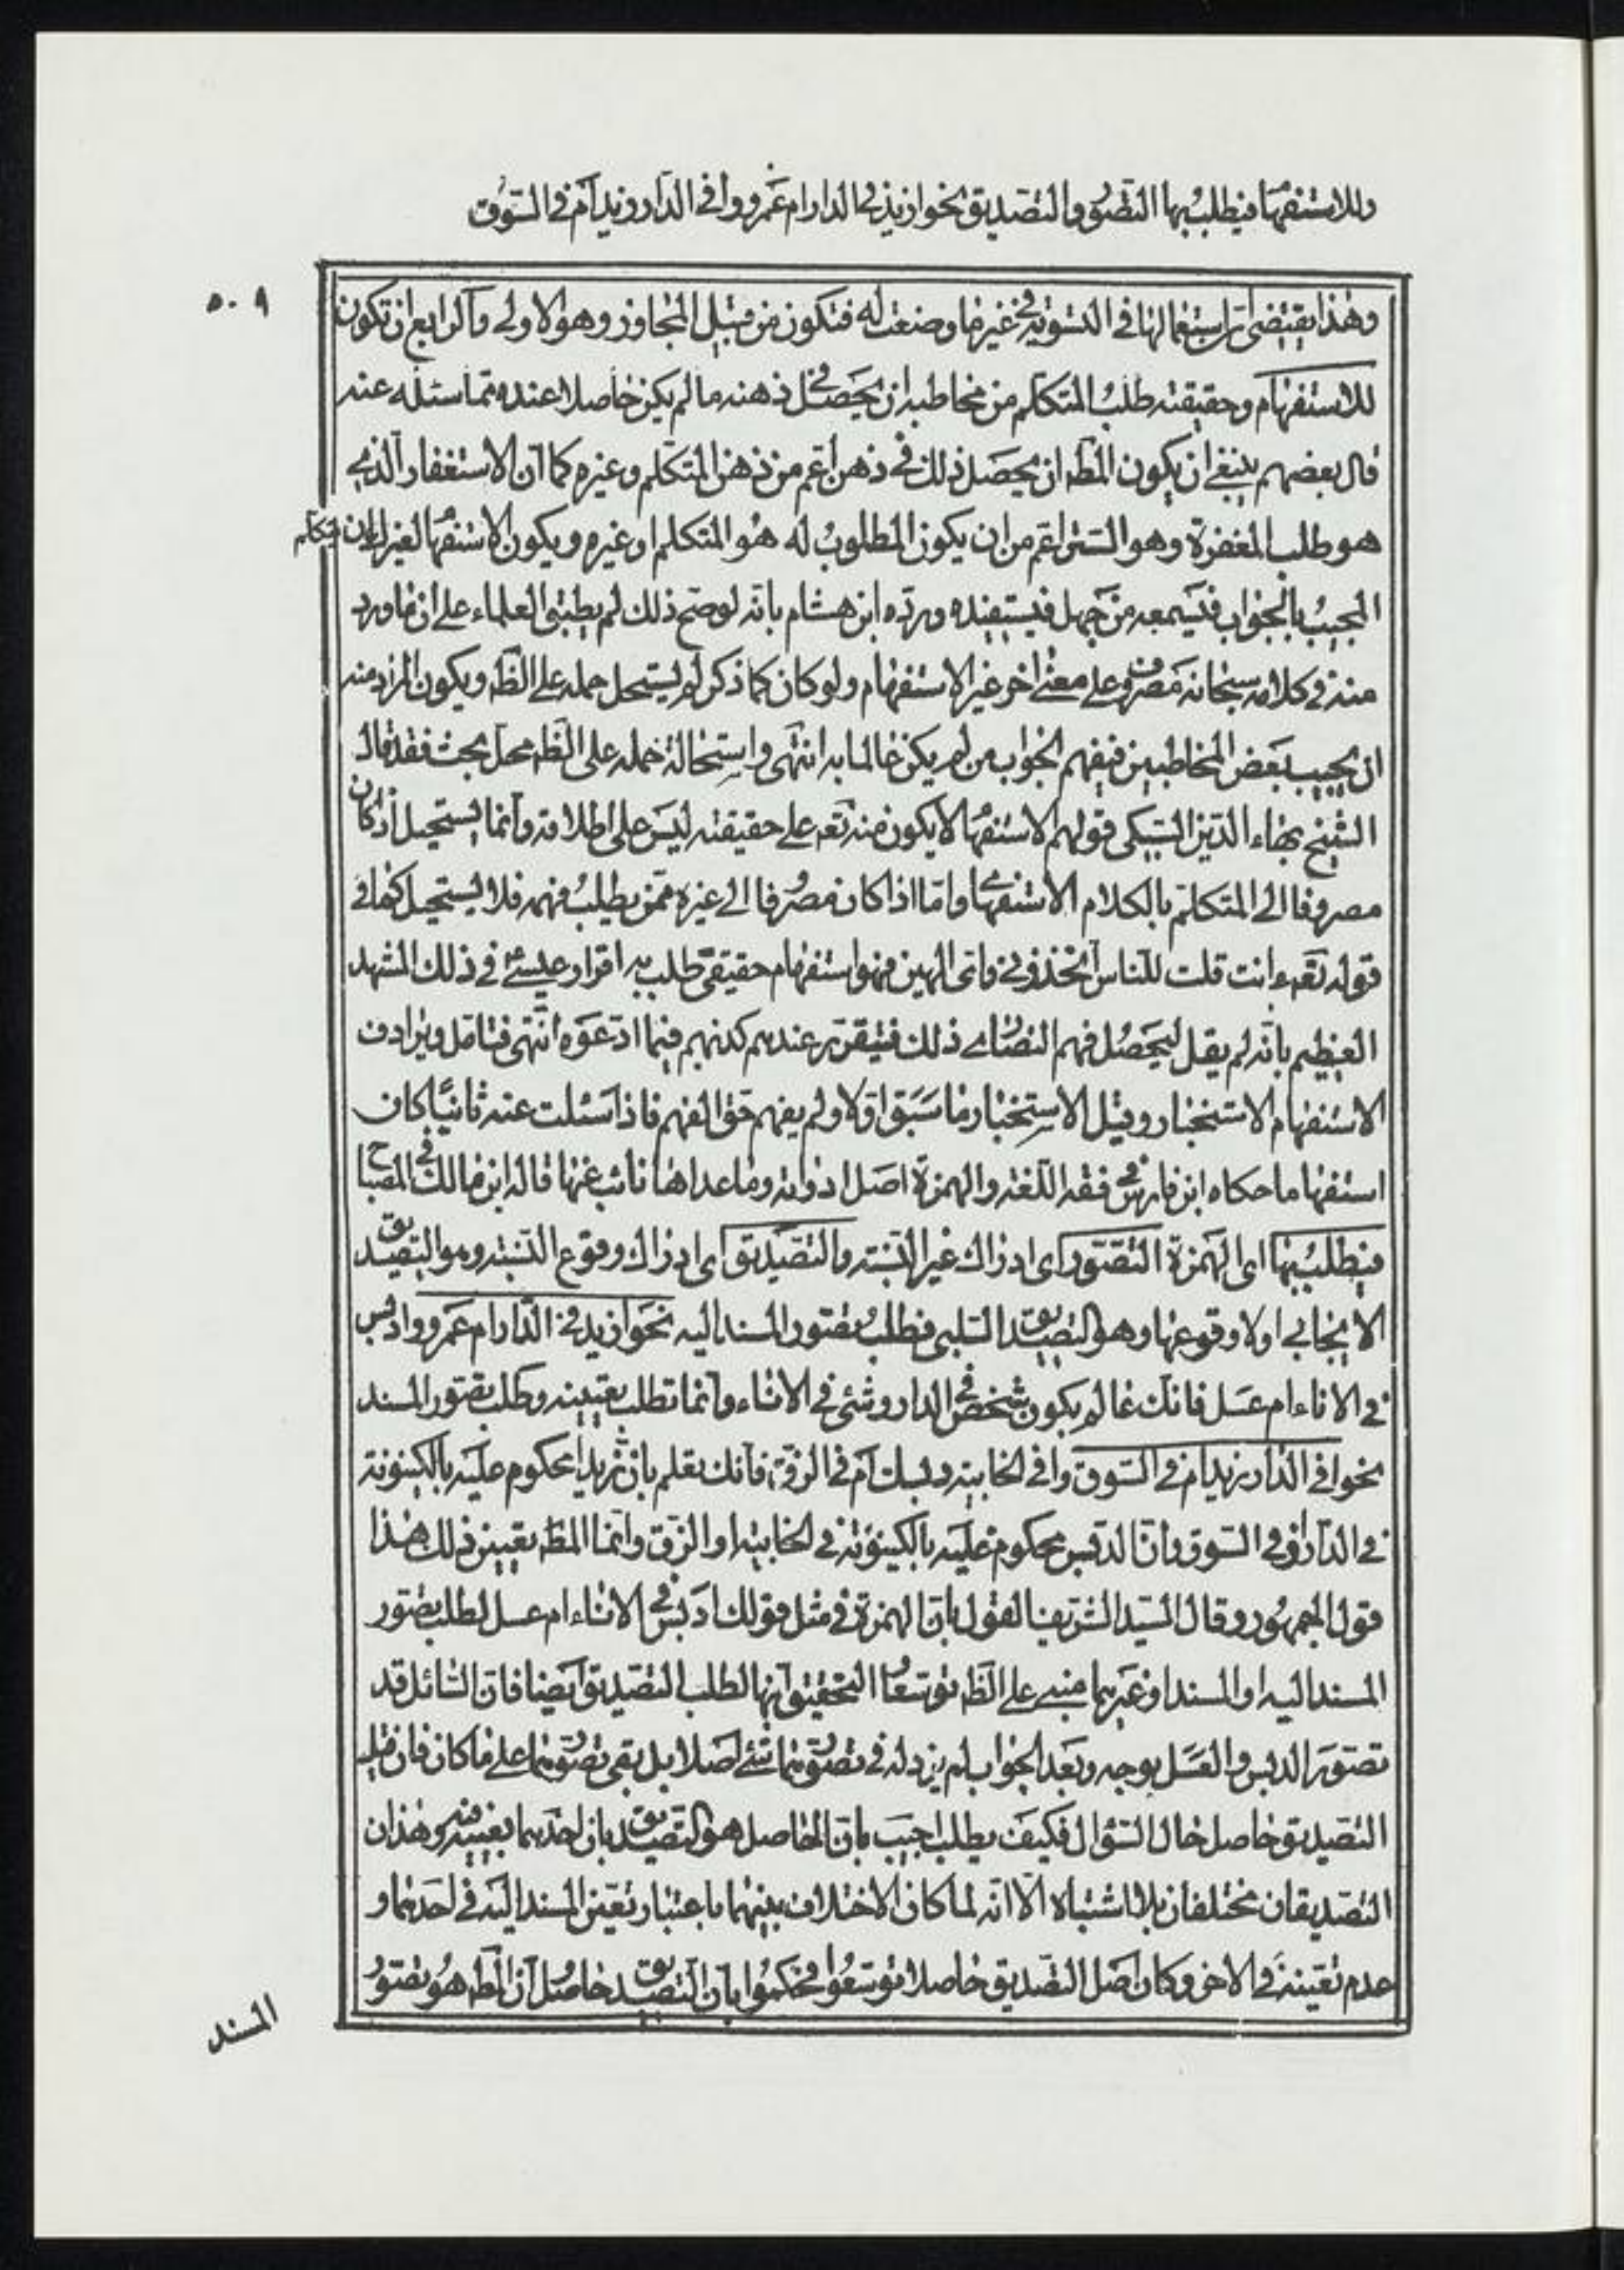 وللاستفهام فيطلب بها التصور والتصديق نحو ازيد في الدار ام عمرو وا في الدار زيد ام في السوق
٥٠٩
وهذا يقتضى ان استعمالها في التسوية في غير ما وضعت له فتكون من قبيل المجاوز وهو الاولى والرابع ان تكون
للاستفهام وحقيقته طلب المتكلم من مخاطبه ان يحصل في ذهنه ما لم يكن حاصلا عنده مما سئله عنه
قال بعضهم ينبغي ان يكون المط ان يحصل ذلك في ذهن اعم من ذهن المتكلم وغيره كما ان الاستغفار الذي
هو طلب المغفرة وهو الستر اعم من ان يكون المطلوب له هو المتكلم او غيره ويكون الاستفهام لغير المتكلم لان
المجيب بالجواب فيسمعه من جهل فيستفيده ورده ابن هشام بانه لو صح ذلك لم يطبق العلماء على ان ما ورد
منه في كلامه سبحانه مصروف على معنى اخر غير الاستفهام ولو كان كما ذكر لم يستحل حمله على الظ ويكون المراد منه
ان يجيب بعض المخاطبين فيفهم الجواب من لم يكن عالما به انتهى واستحالة حمله على الظ محل بحث فقد قال
الشيخ بهاء الدين السبكى قولهم الاستفهام لا يكون منه تعه على حقيقته ليس على اطلاقه وانما يستحيل اذ كان
مصروفا الى المتكلم بالكلام الاستفهامي واما اذا كان مصروفا الى غيره ممن يطلب فهمه فلا يستحيل كما في
قوله تعه ءانت قلت للناس اتخذوني وامى الهين فهو استفهام حقيقى طلب به اقرار عيسى في ذلك المشهد
العظيم بانه لم يقل ليحصل فهم النصارى ذلك فيتقرر عندهم كذبهم فيما ادعوه انتهى فتامل ويرادف
الاستفهام الاستخبار وقيل الاستخبار ما سبق اولا ولم يفهم حق الفهم فاذا سئلت عنه ثانيا كان
استفهاما حكاه ابن فارس في فقه اللغه والهمزة اصل ادواته وما عداها نائب عنها قاله ابن مالك في المصباح
فيطلب بها اى الهمزة التصور اى ادراك غير النسبة والتصديق اى ادراك وقوع النسبة وهو التصديق
الايجابي اولا وقوعها وهو التصديق السلبى فطلب تصور المسند اليه نحو ازيد في الدار ام عمرو وادبس
في الاناء ام عسل فانك عالم بكون شخص في الدار وشئ في الاناء وانما تطلب تعيينه وطلب تصور المسند
نحو ا في الدار زيد ام في السوق وا في الخابية دبسك ام في الزق فانك تعلم بان زيدا محكوم عليه بالكينونة
في الدار او في السوق وان الدبس محكوم عليه بالكينونة في الخابية او الزق وانما المط تعيين ذلك هذا
قول الجمهور وقال السيد الشريف القول بان الهمزة في مثل قولك ادبس في الاناء ام عسل لطلب تصور
المسند اليه او المسند او غيرهما مبنى على الظ توسعا التحقيق انها لطلب التصديق ايضا فان السائل قد
تصور الدبس والعسل بوجه وبعد الجواب لم يزد له في تصورهما شئ اصلا بل بقى تصورهما على ما كان فان قيل
التصديق حاصل حال السؤال فكيف يطلب اجيب بان الحاصل هو التصديق بان احدهما بعينه وهذان
التصديقان مختلفان بلا اشتباه الا انه لما كان الاختلاف بينهما باعتبار تعين المسند اليه في احدهما و
عدم تعينه في الاخر وكان اصل التصديق حاصلا توسعوا فحكموا بان التصديق حاصل ان المط هو تصور
المسند